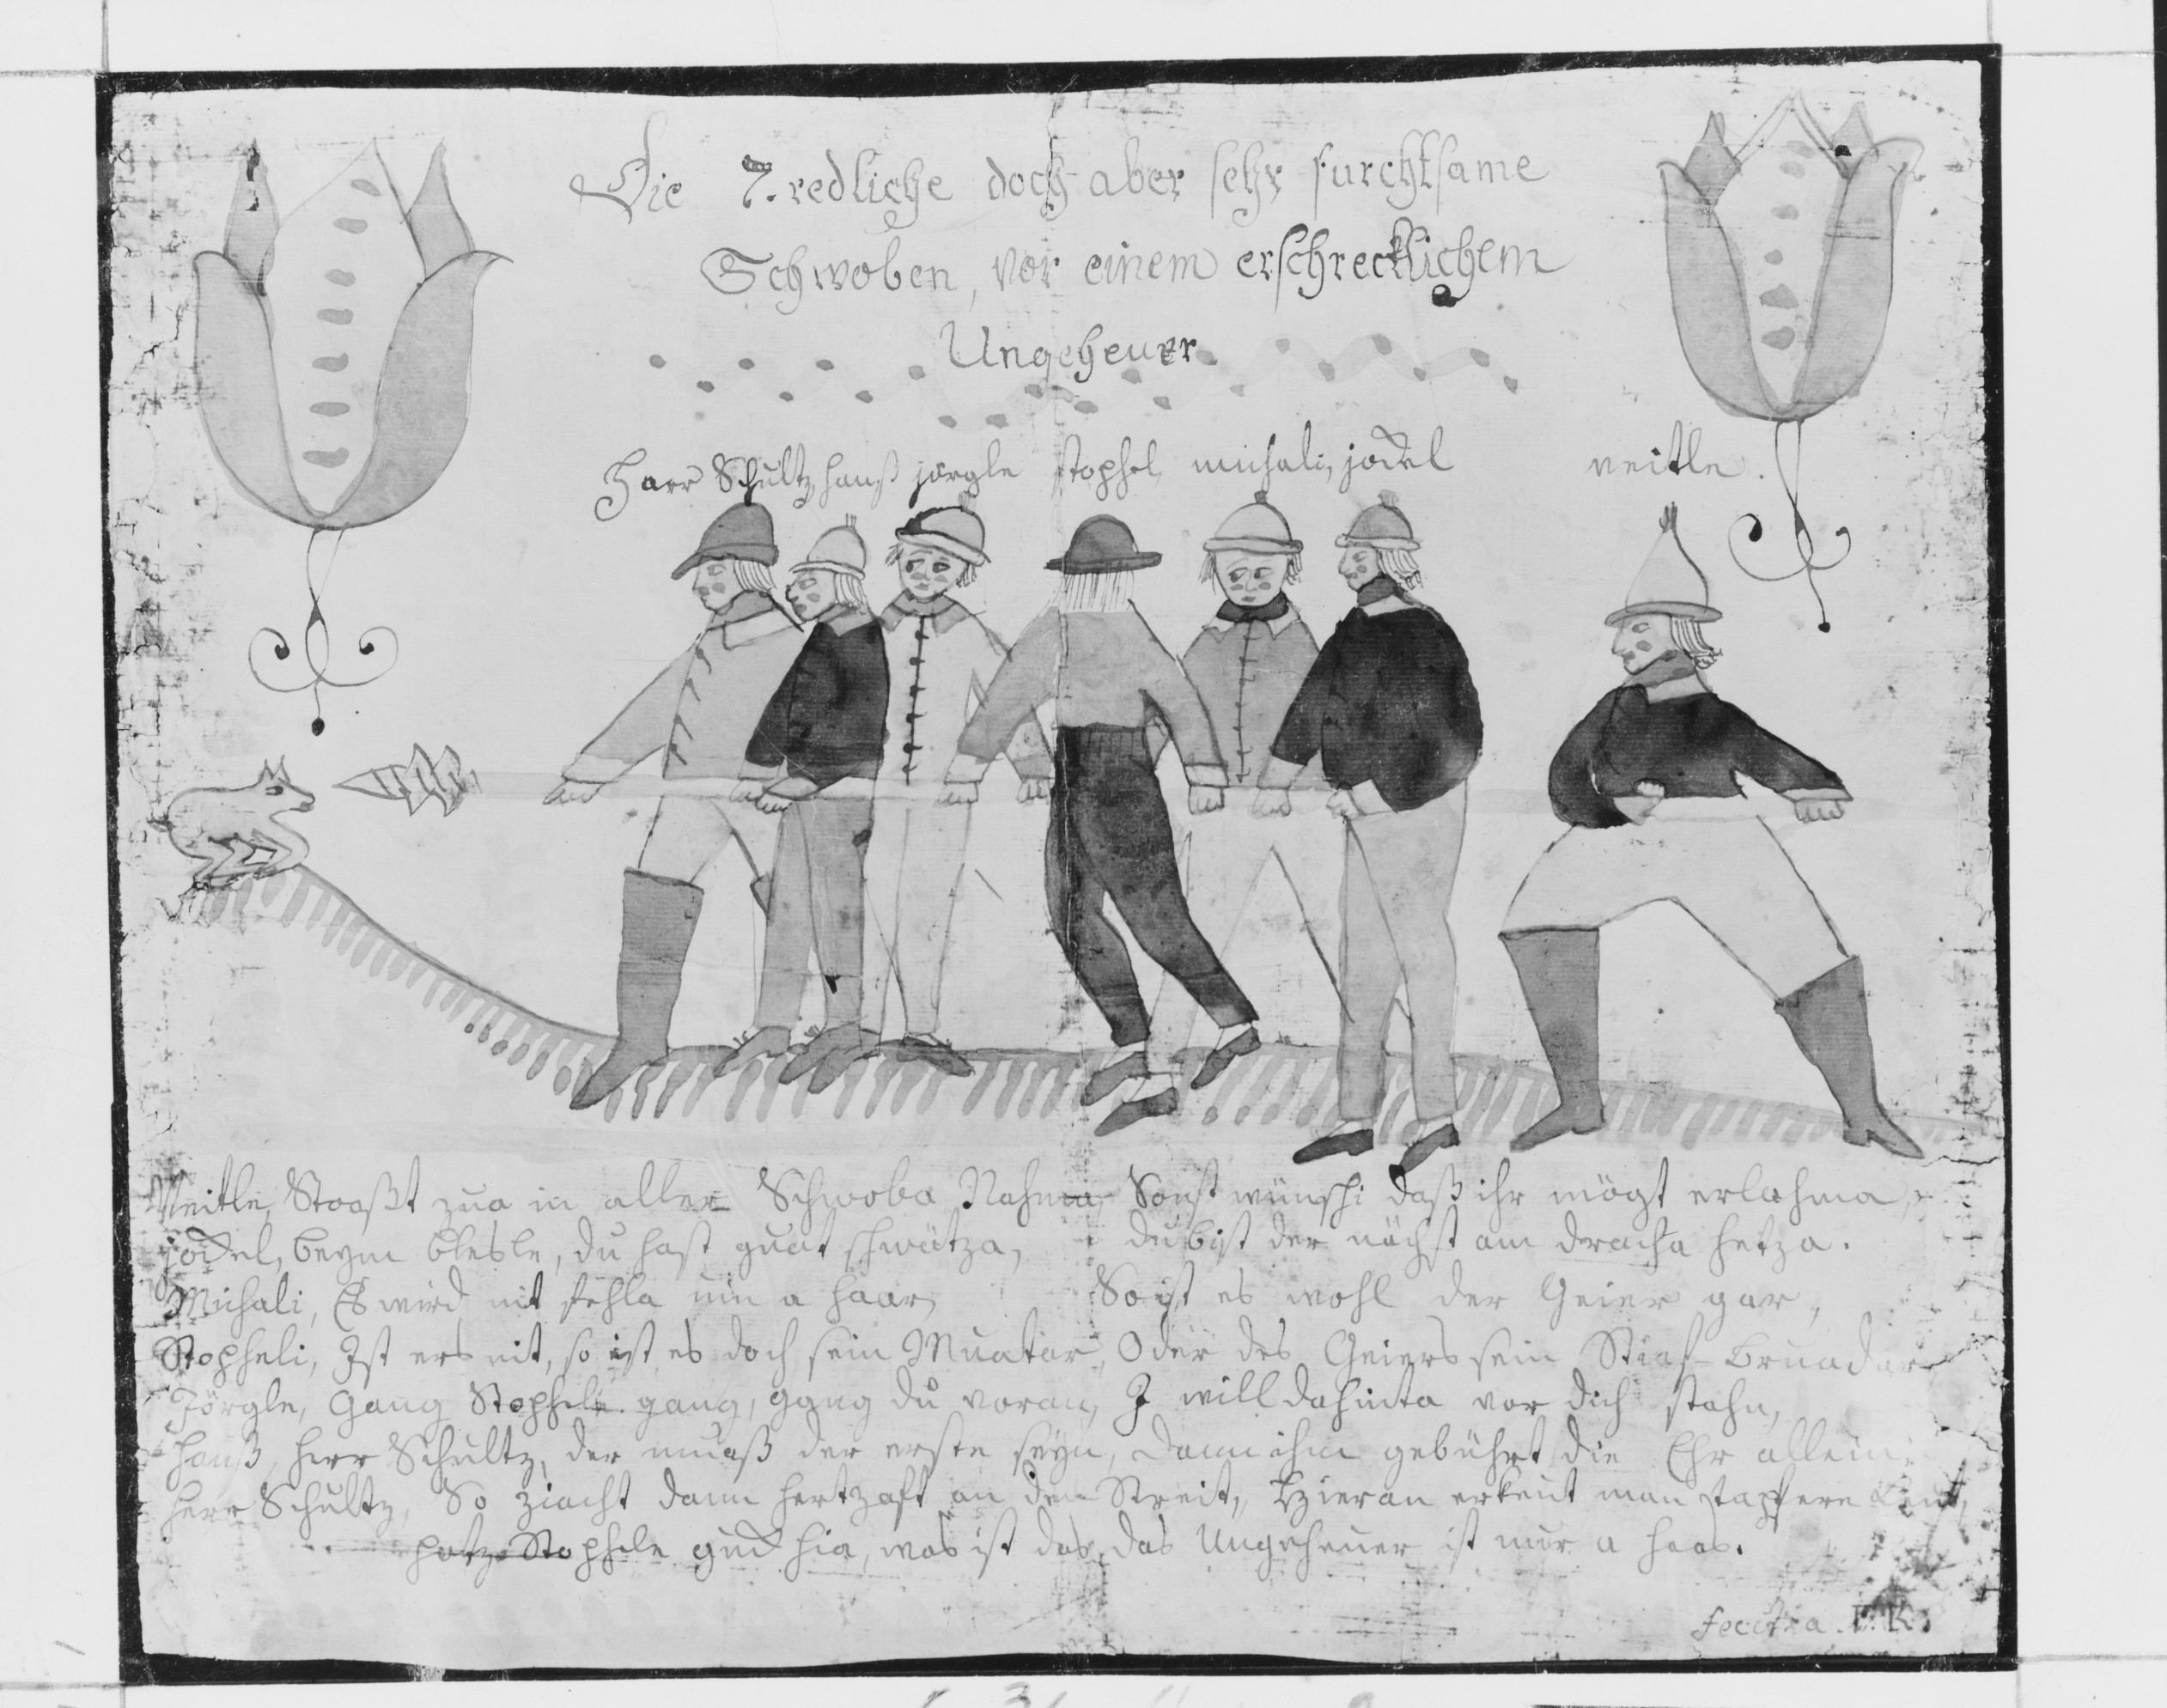 Die 7. redliche doch aber sehr furchtsame
Schwoben, vor einem erschrecklichem
Ungeheuer
Herr Schultz hanß jörgle stophel michali, jockel veitle.
Veitle, Stooßt zua in aller Schwoba Nahma, Sonst wünschi daß ihr mögt erlahma,
jockel, beym blesle, du hast guat schwätza, du bist der nächst am dracha hetza.
Michali, Es wird nit fehla um a haar, So ist es wohl der Geier gar,
Stopheli, Ist ers nit, so ist es doch sein Muatar, Oder des Geiers sein Stiaf-bruadar
Jörgle, Gang Stophele gang, gang du voran, I will dahinta vor dich stahn,
hanß, herr Schultz, der muaß der erste seyn, dann ihm gebührt die Ehr allein,
herr Schultz, So ziacht dann hertzaft an den Streit, hieran erkent man tapfere Leut,
potz Stophele guck hia, was ist das, das Ungeheuer ist nur a haas.
fecit